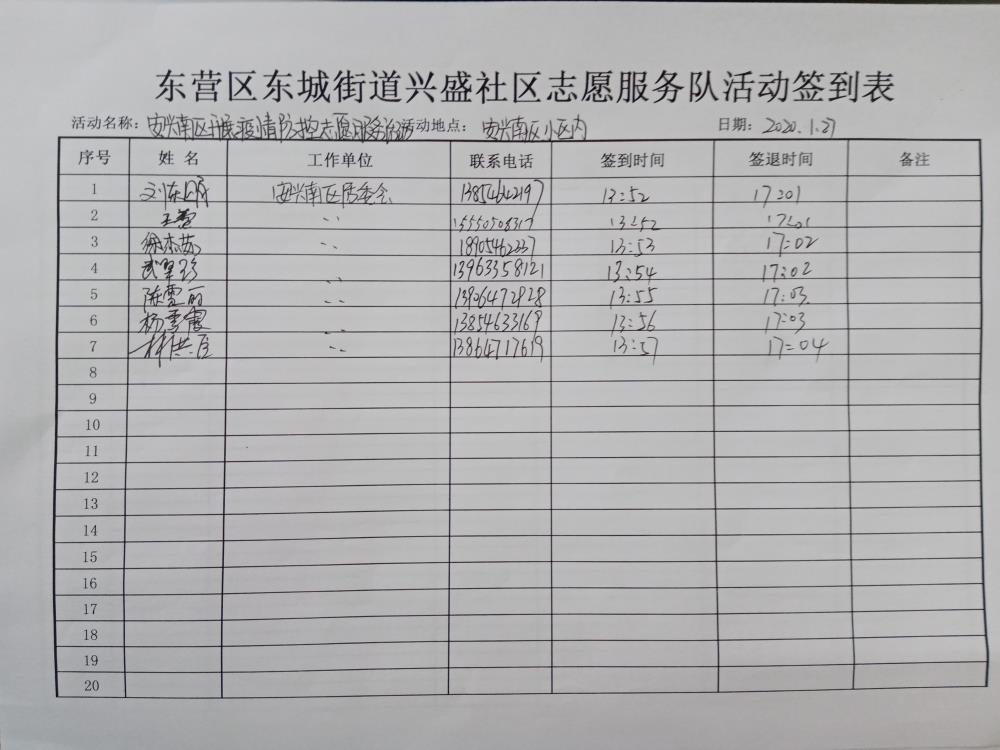 东营区东城街道兴盛社区志愿服务队活动签到表
活动名称：安兴南区开展疫情防控志愿服务活动 活动地点：安兴南区小区内 日期：2020.1.27
序号 姓名 工作单位 联系电话 签到时间 签退时间 备注
1 安兴南区居委会 13854642197 13:52 17:01
2 王萱 〃 15550508317 13:52 17:01
3 徐杰茹 〃 18905462337 13:53 17:02
4 武翠珍 〃 13963358121 13:54 17:02
5 陈雪丽 〃 13906472928 13:55 17:03
6 杨雪霞 〃 13854633169 13:56 17:03
7 〃 13864717619 13:57 17:04
8
9
10
11
12
13
14
15
16
17
18
19
20